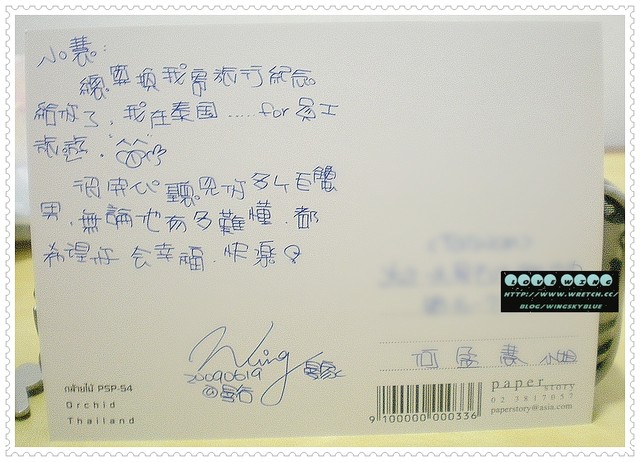 小慧:
總算換我寄旅行紀念
給你了,我在泰国.....for 員工
旅遊.
很開心聽見你多了毛蟹
男,無論他有多難懂.都
希望你会幸福.快樂
Wing
20090619
LOVE WING
HTTP://WWW.WRETCH.CC/
BLOG/WINGSKYBLUE
กล้วยไม้ PSP-54
Orchid
Thailand
小姐
paper story
02 3817057
paperstory@asia.com
9 100000 000336